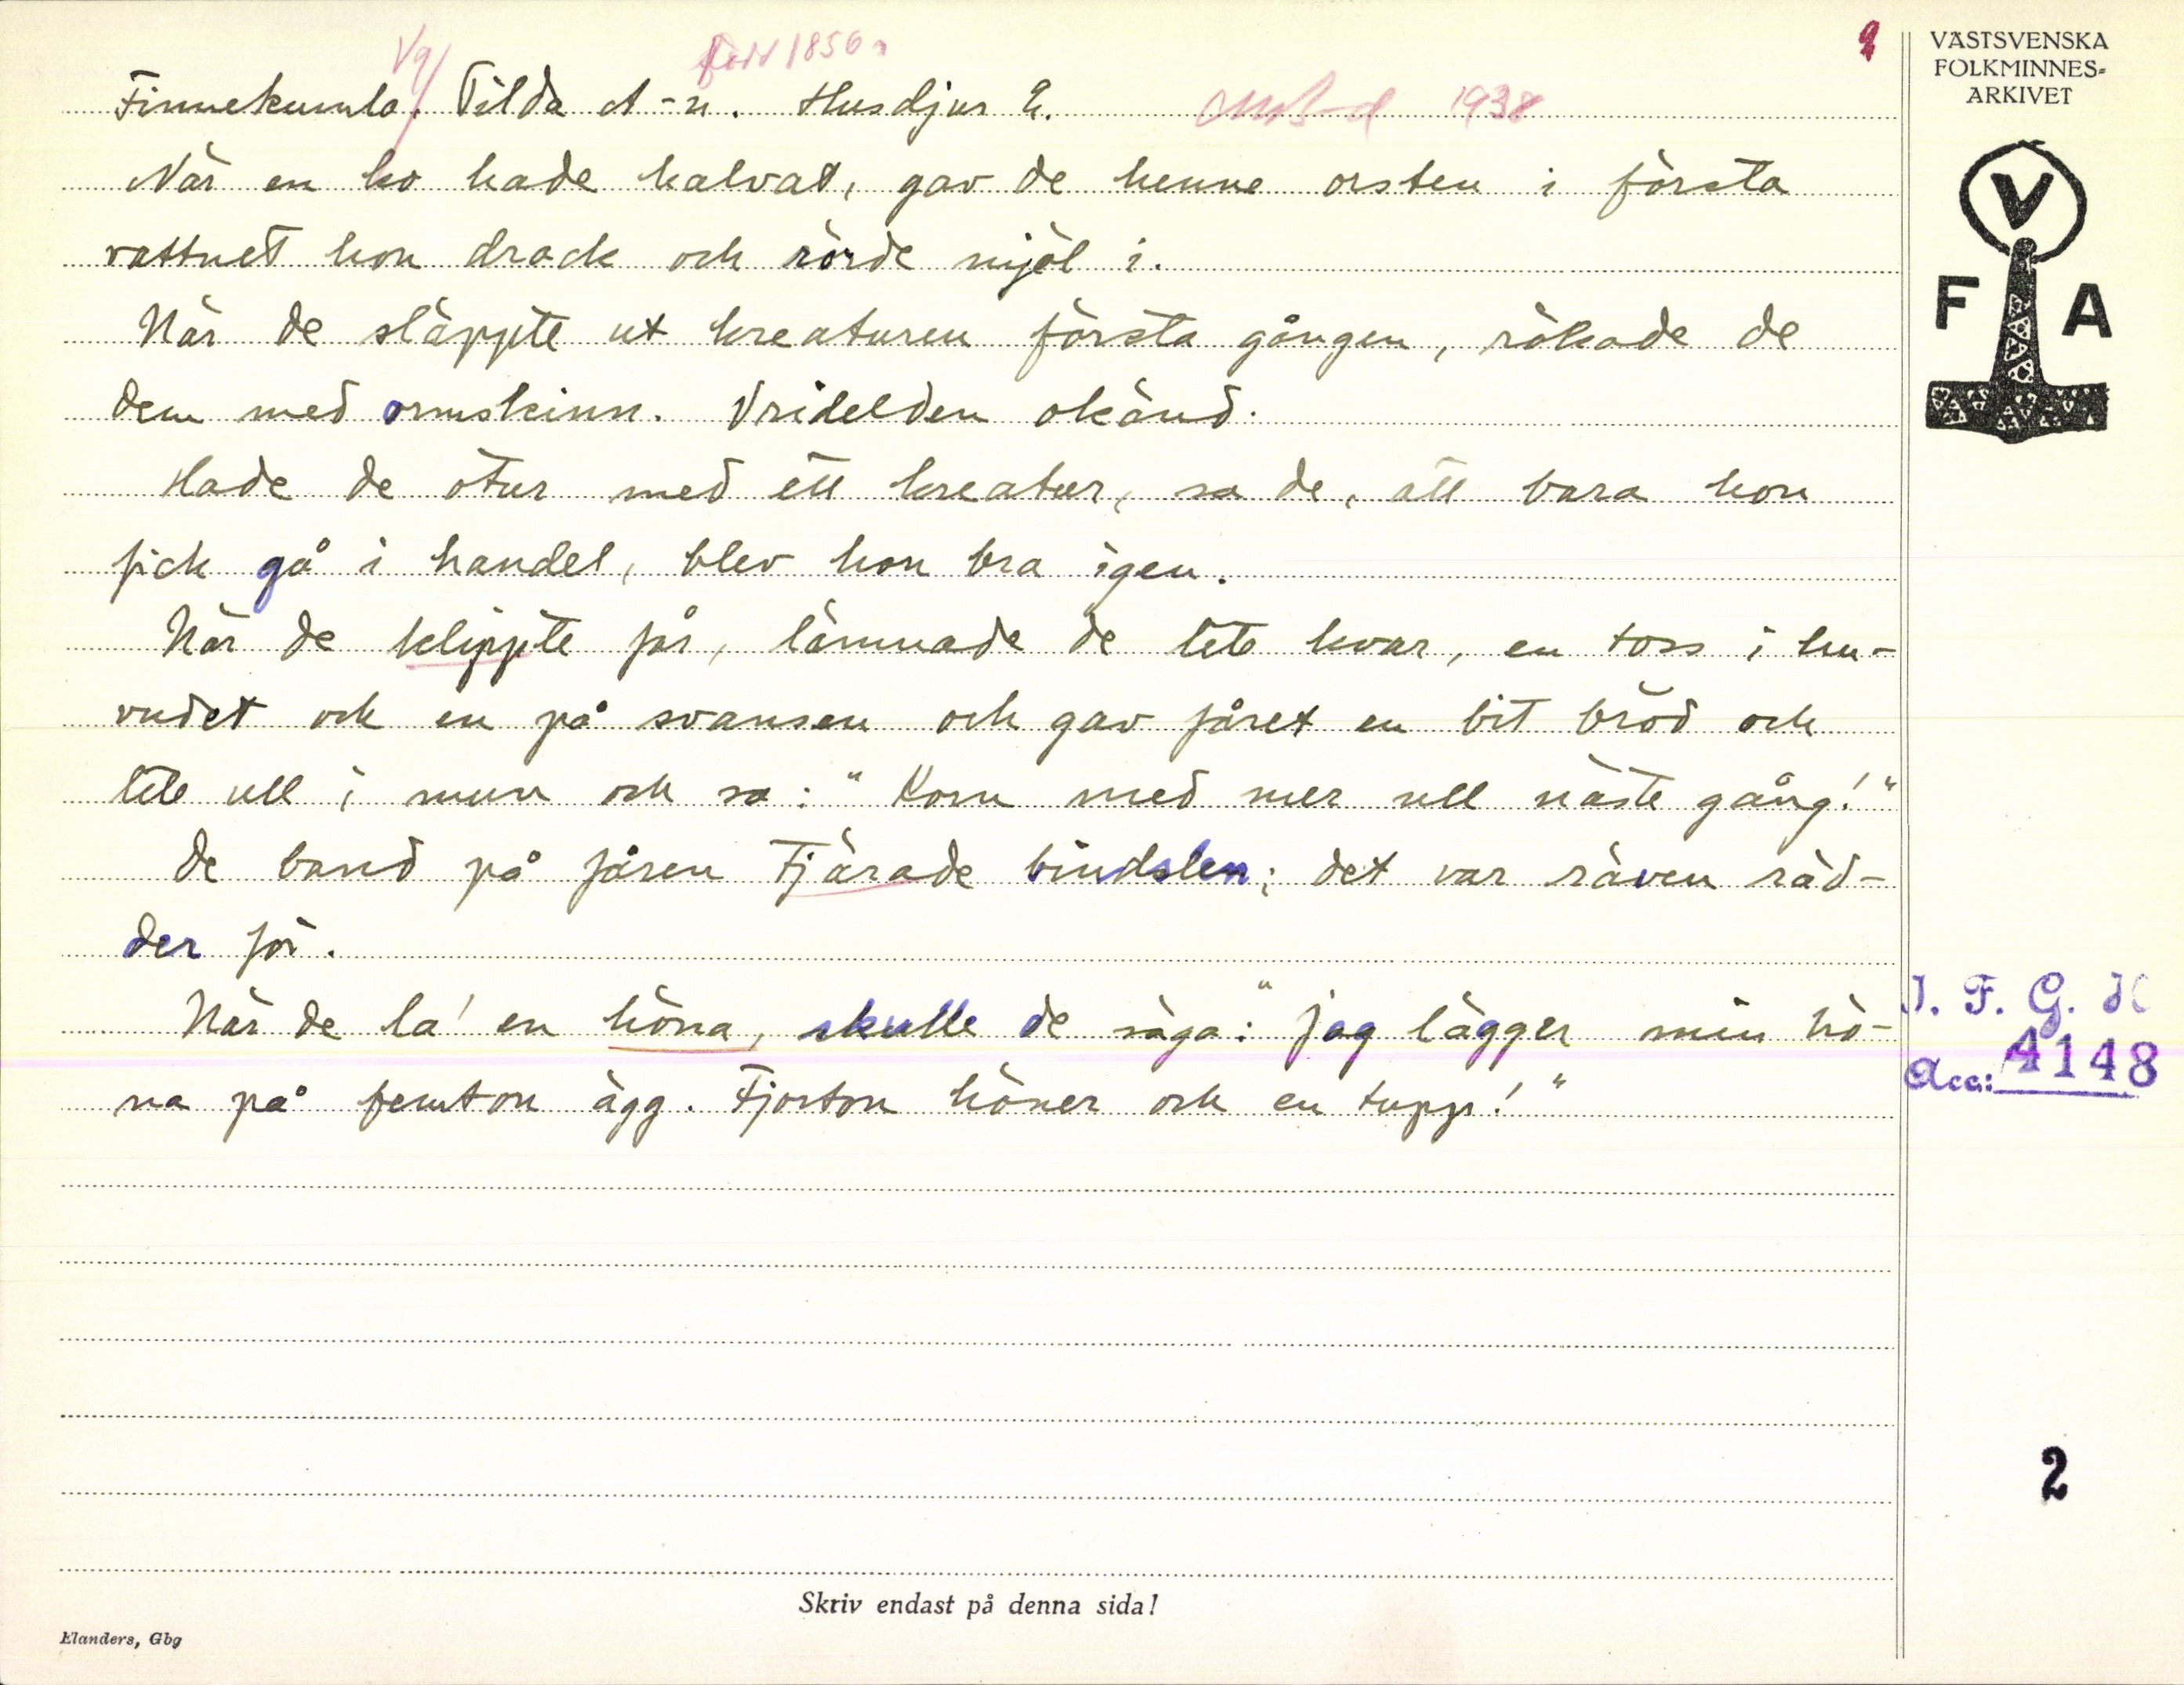 Vg/
född 1850
2
Finnekumla. Tilda A-n. Husdjur 2.
1938
När en ko hade kalvat, gav de henne orsten i första
vattnet hon drack och rörde mjöl i.
När de släppte ut kreaturen första gången, rökade de
dem med ormskinn. Vridelden okänd.
Hade de otur med ett kreatur, sa de, att bara hon
fick gå i handel, blev hon bra igen.
När de klippte får, lämnade de lite kvar, en toss i hu-
vudet och en på svansen och gav fåret en bit bröd och
lite ull i mun och sa: "Kom med mer ull näste gång!"
De band på fåren tjärade bindslen; det var räven räd-
der för.
När de la' en höna, skulle de säga: "Jag lägger min hö-
na på femton ägg. Fjorton höner och en tupp!"
VÄSTSVENSKA
FOLKMINNES-
ARKIVET
V
F A
I. F. G. H
Acc: 4148
2
Skriv endast på denna sida!
Elanders, Gbg